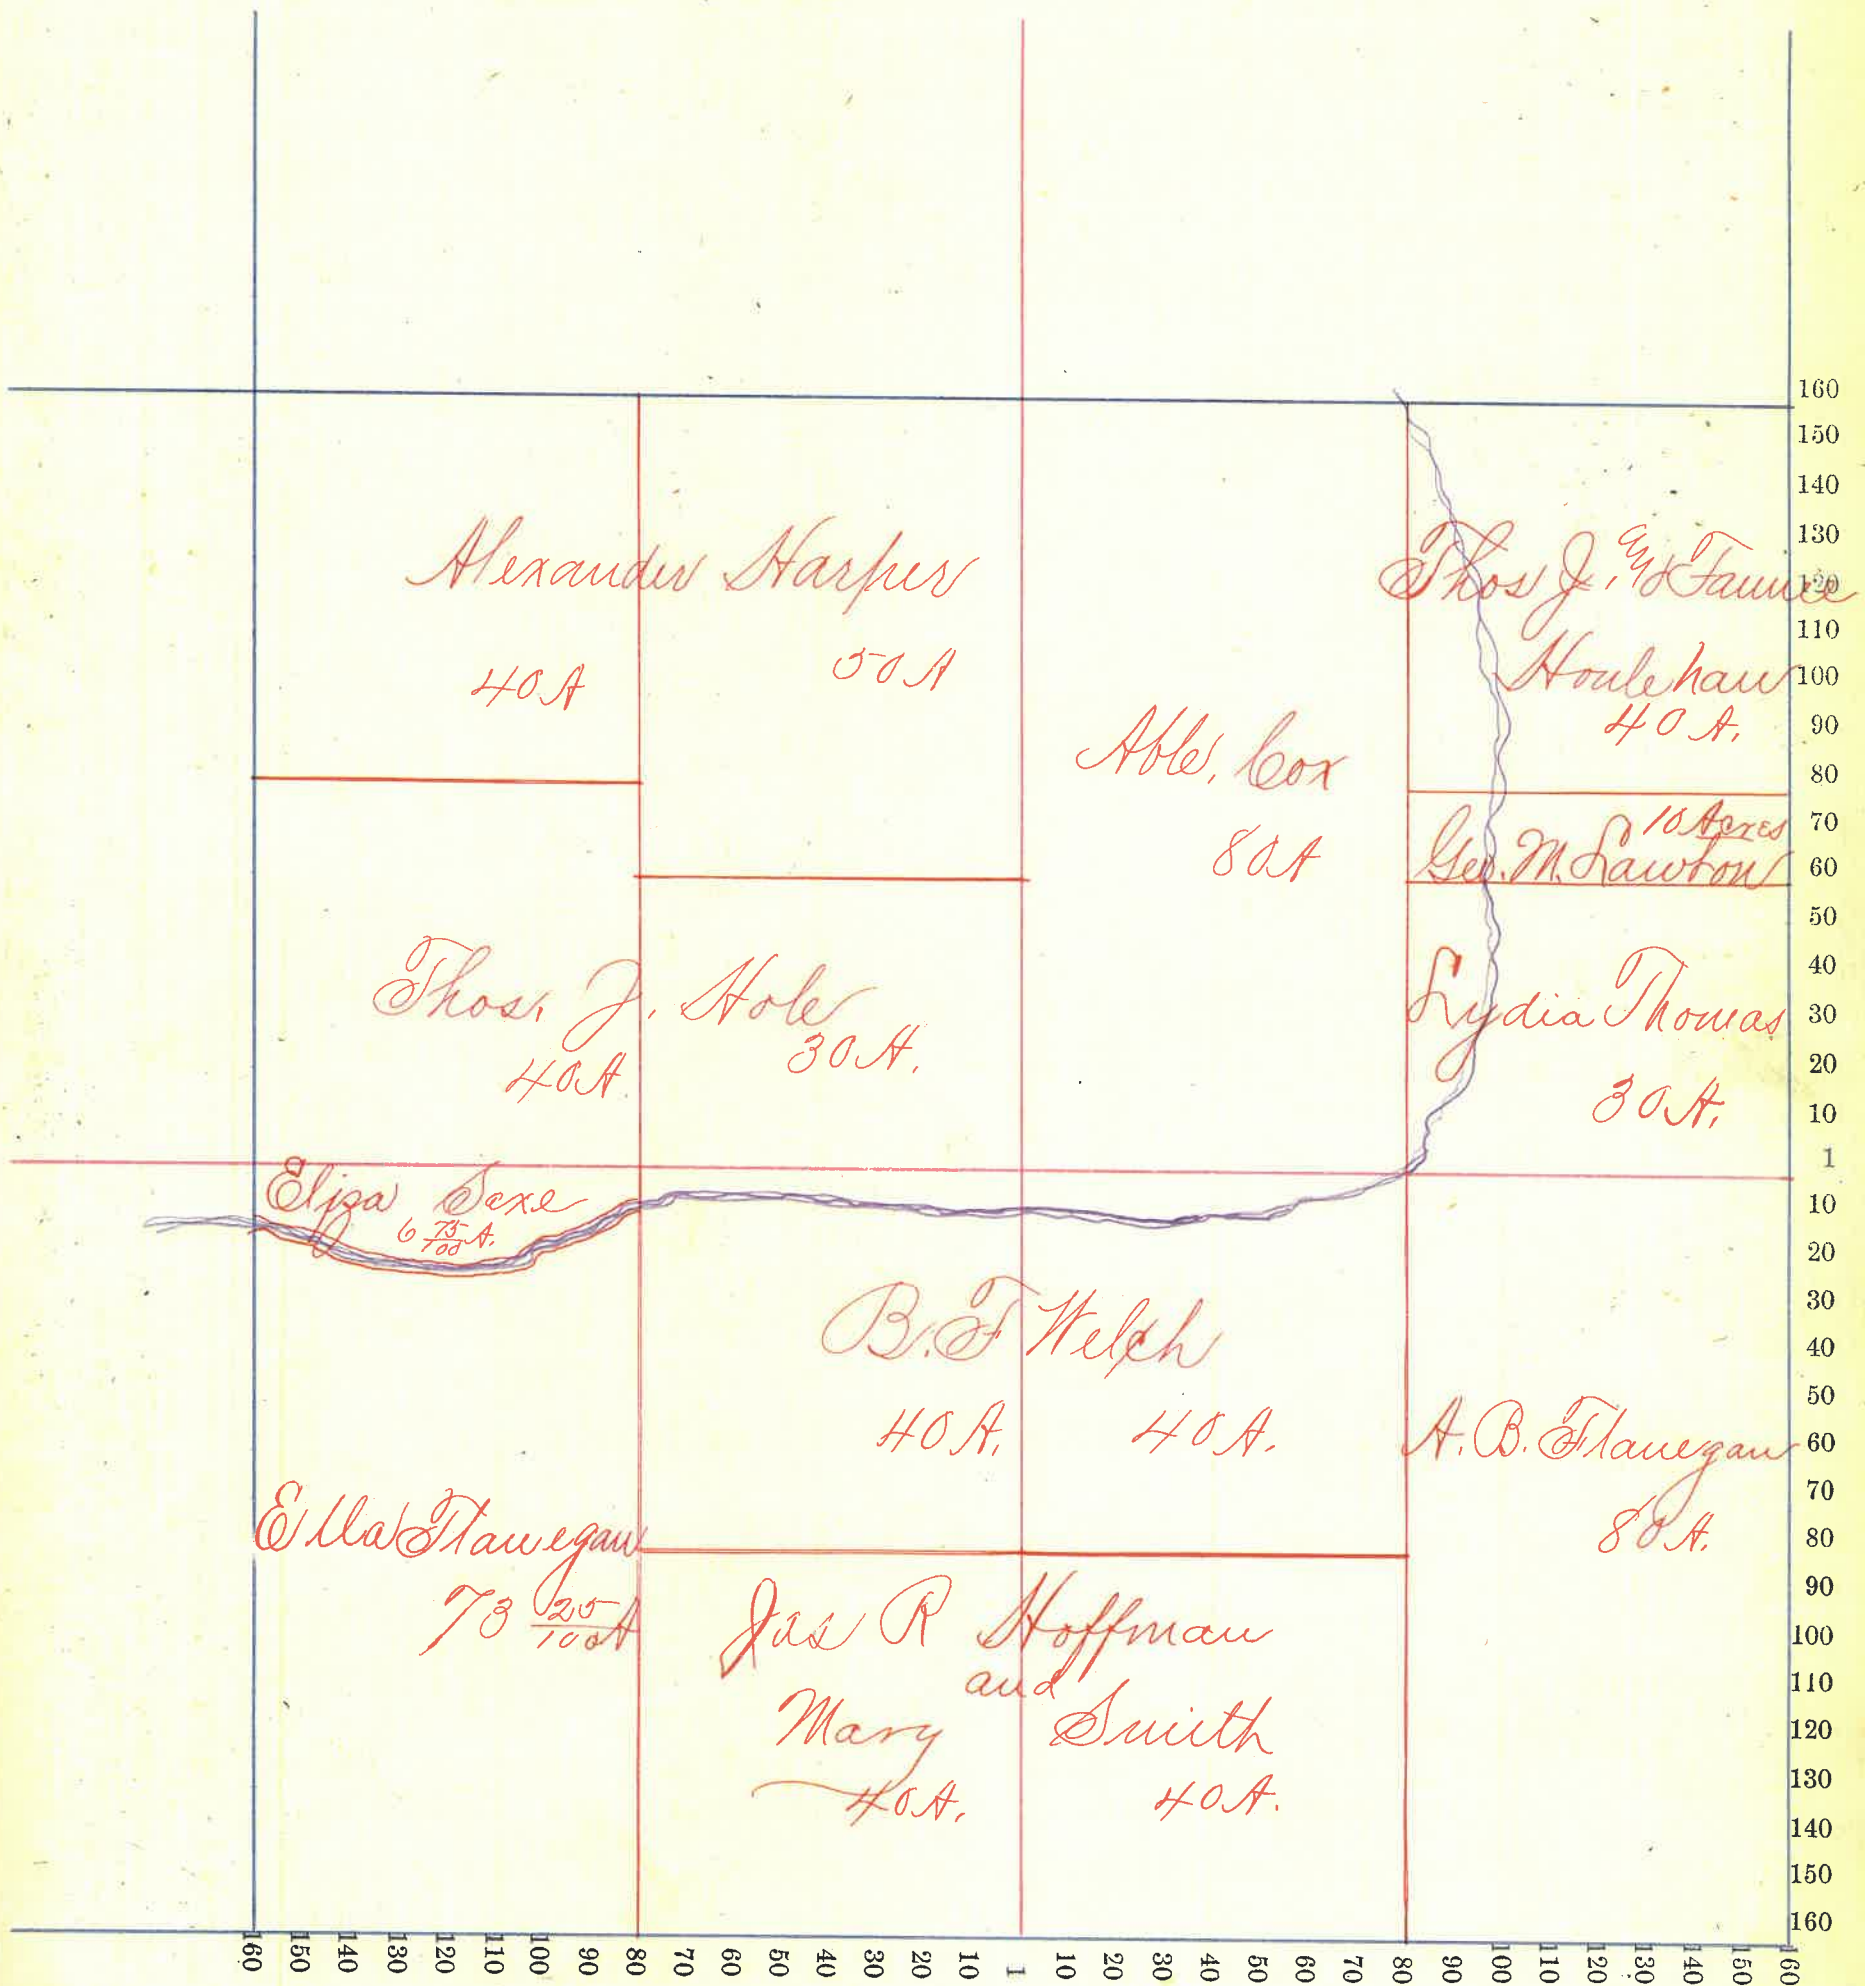 Alexander Harper
40 A
50 A
Able, Cox
80 A
Thos J, & Fannie
Houlehan
40 A.
10 Acres
Geo. M. Lawton
Thos. J. Hole
40 A.
30 A.
Lydia Thomas
30 A.
Eliza Saxe
6 75/100 A.
B. F Welch
40 A.
40 A.
A. B. Flanegan
80 A.
Ella Flanegan
73 25/100 A
Jas R Hoffman
and
Mary Smith
40 A.
40 A.
160
150
140
130
120
110
100
90
80
70
60
50
40
30
20
10
1
10
20
30
40
50
60
70
80
90
100
110
120
130
140
150
160
160 150 140 130 120 110 100 90 80 70 60 50 40 30 20 10 1 10 20 30 40 50 60 70 80 90 100 110 120 130 140 150 160